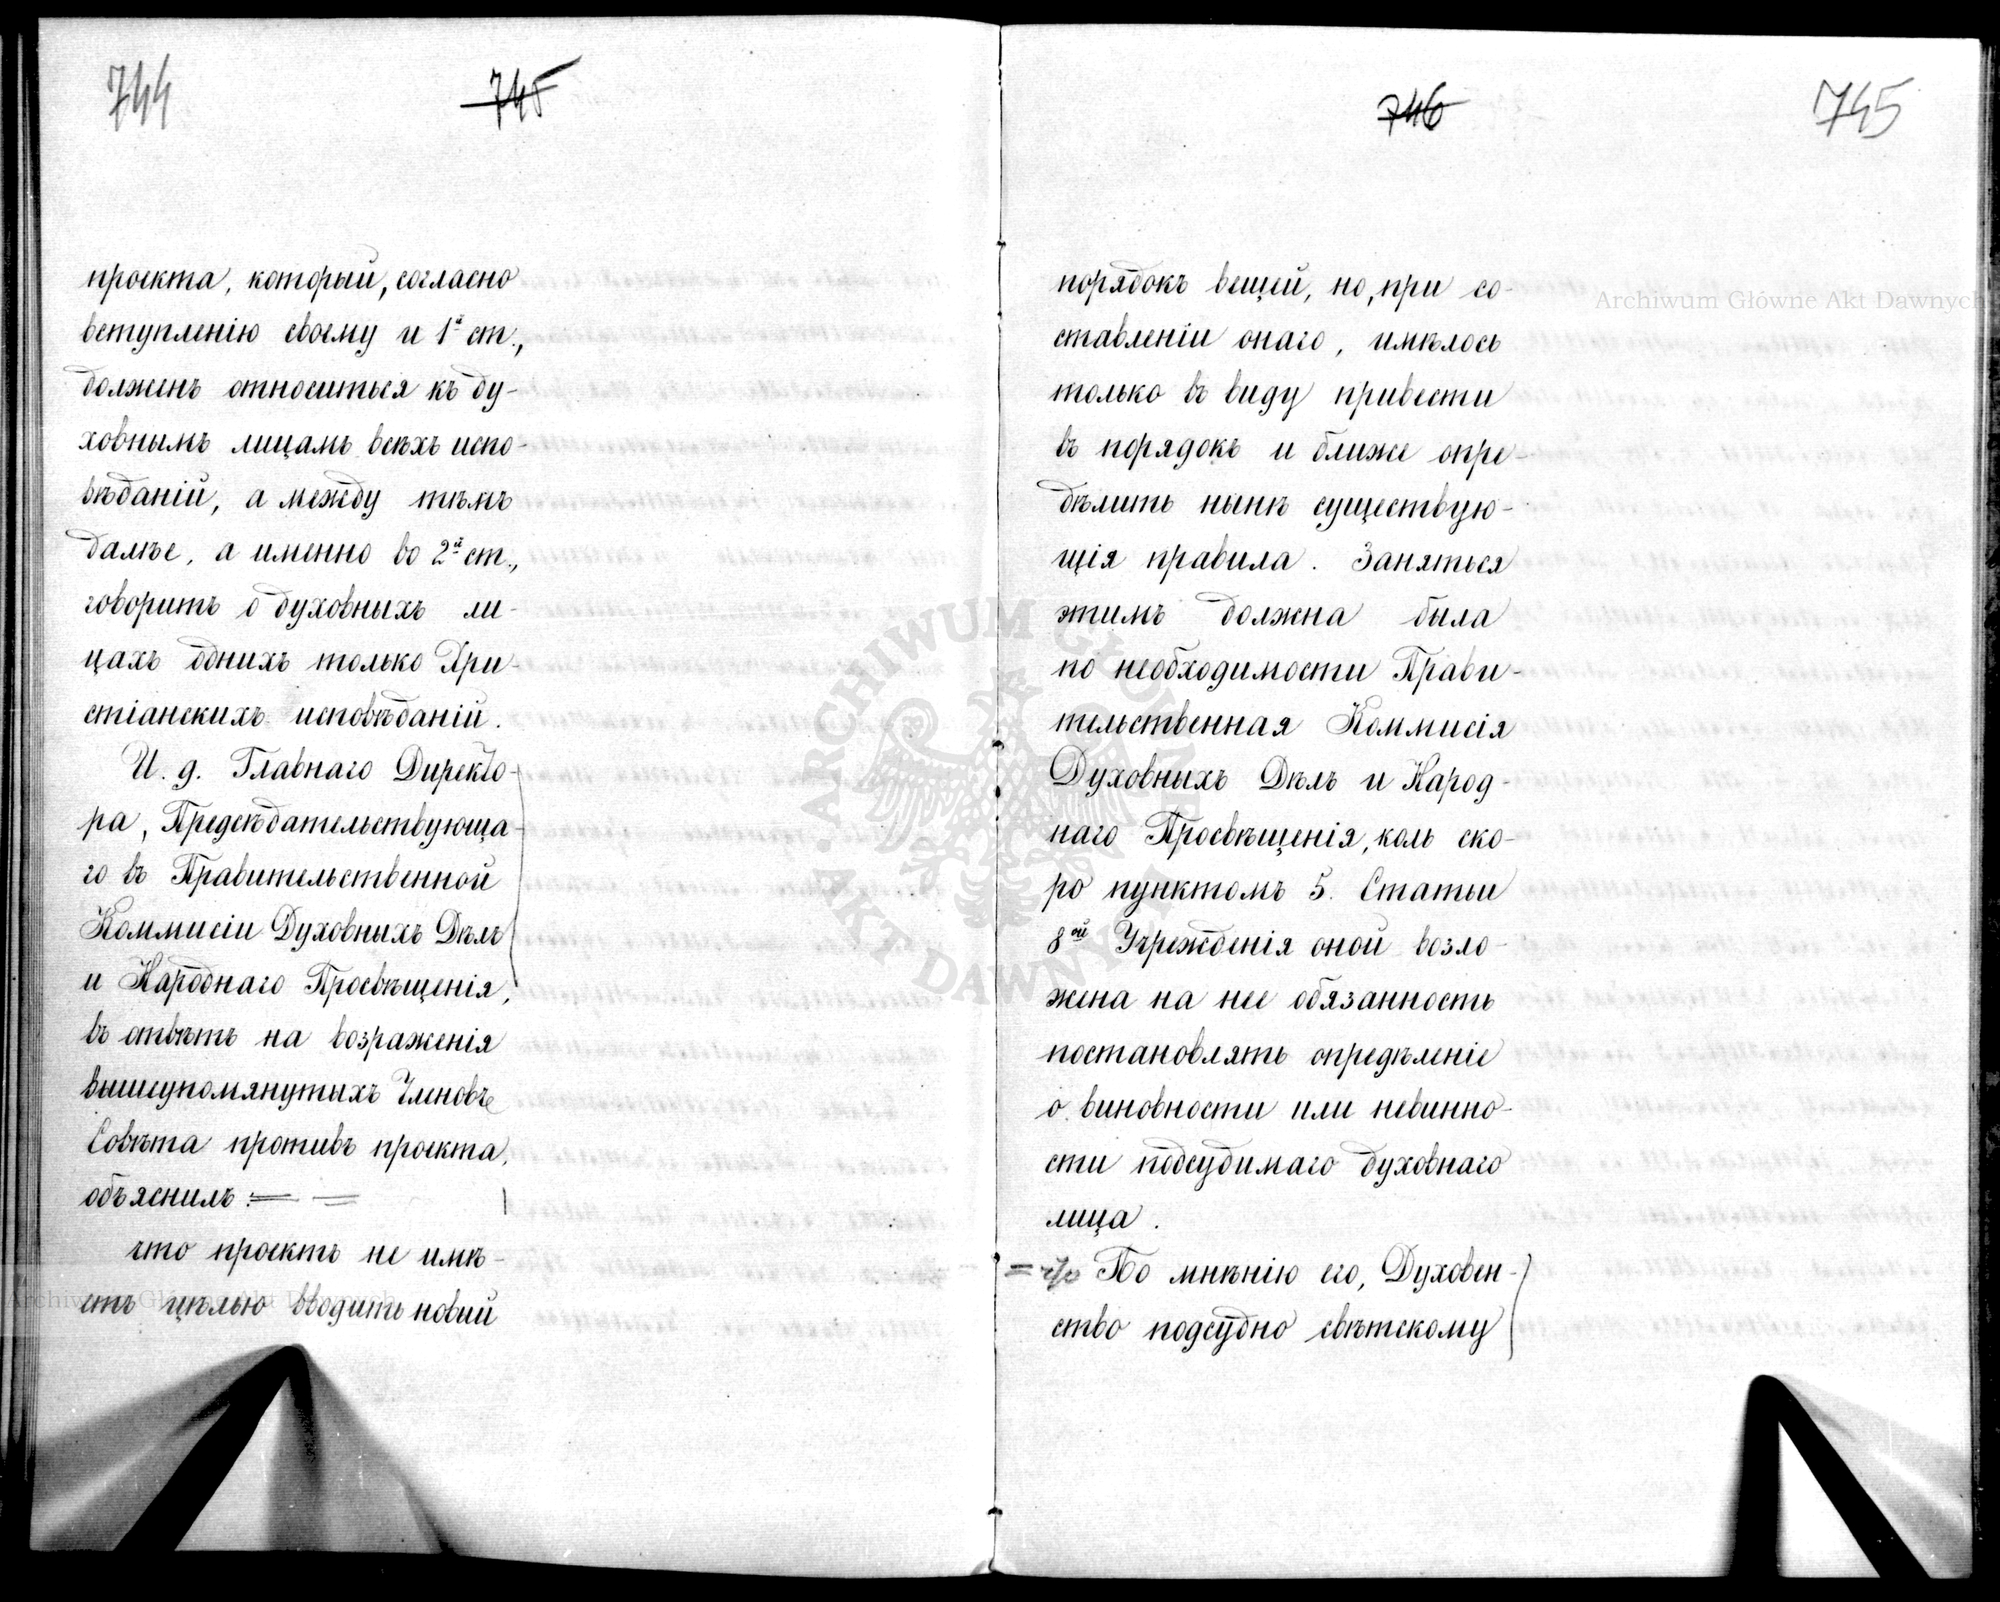 744
745
проекта, который, согласно
вступленію своему и 1й ст.,
долженъ относиться къ ду-
ховнымъ лицамъ всѣхъ испо-
вѣданій, а между тѣмъ
далѣе, а именно во 2й ст.,
говоритъ о духовныхъ ли-
цахъ однихъ только Хри-
стіанскихъ исповѣданій.
И. д. Главнаго Директо-
ра, Предсѣдательствующа-
го въ Правительственной
Коммисіи Духовныхъ Дѣлъ
и Народнаго Просвѣщенія,
въ отвѣтъ на возраженія
вышеупомянутыхъ Членовъ
Совѣта противъ проекта,
объяснилъ:
что проектъ не имѣ-
етъ цѣлью вводить новый
746
745
порядокъ вещей, но, при со-
ставленіи онаго, имѣлось
только въ виду привести
въ порядокъ и ближе опре-
дѣлить нынѣ существую-
щія правила. Заняться
этимъ должна была
по необходимости Прави-
тельственная Коммисія
Духовныхъ Дѣлъ и Народ-
наго Просвѣщенія, коль ско-
ро пунктомъ 5. Статьи
8ой Учрежденія оной возло-
жена на нее обязанность
постановлять опредѣленіе
о виновности или невинно-
сти подсудимаго духовнаго
лица.
По мнѣнію его, Духовен-
ство подсудно свѣтскому
Archiwum Główne Akt Dawnych
Archiwum Główne Akt Dawnych
ARCHIWUM GŁÓWNE AKT DAWNYCH